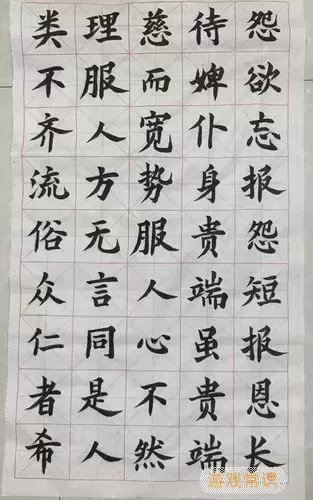 怨欲忘报怨短报恩长
待婢仆身贵端虽贵端
慈而宽势服人心不然
理服人方无言同是人
类不齐流俗众仁者希
游戏常识